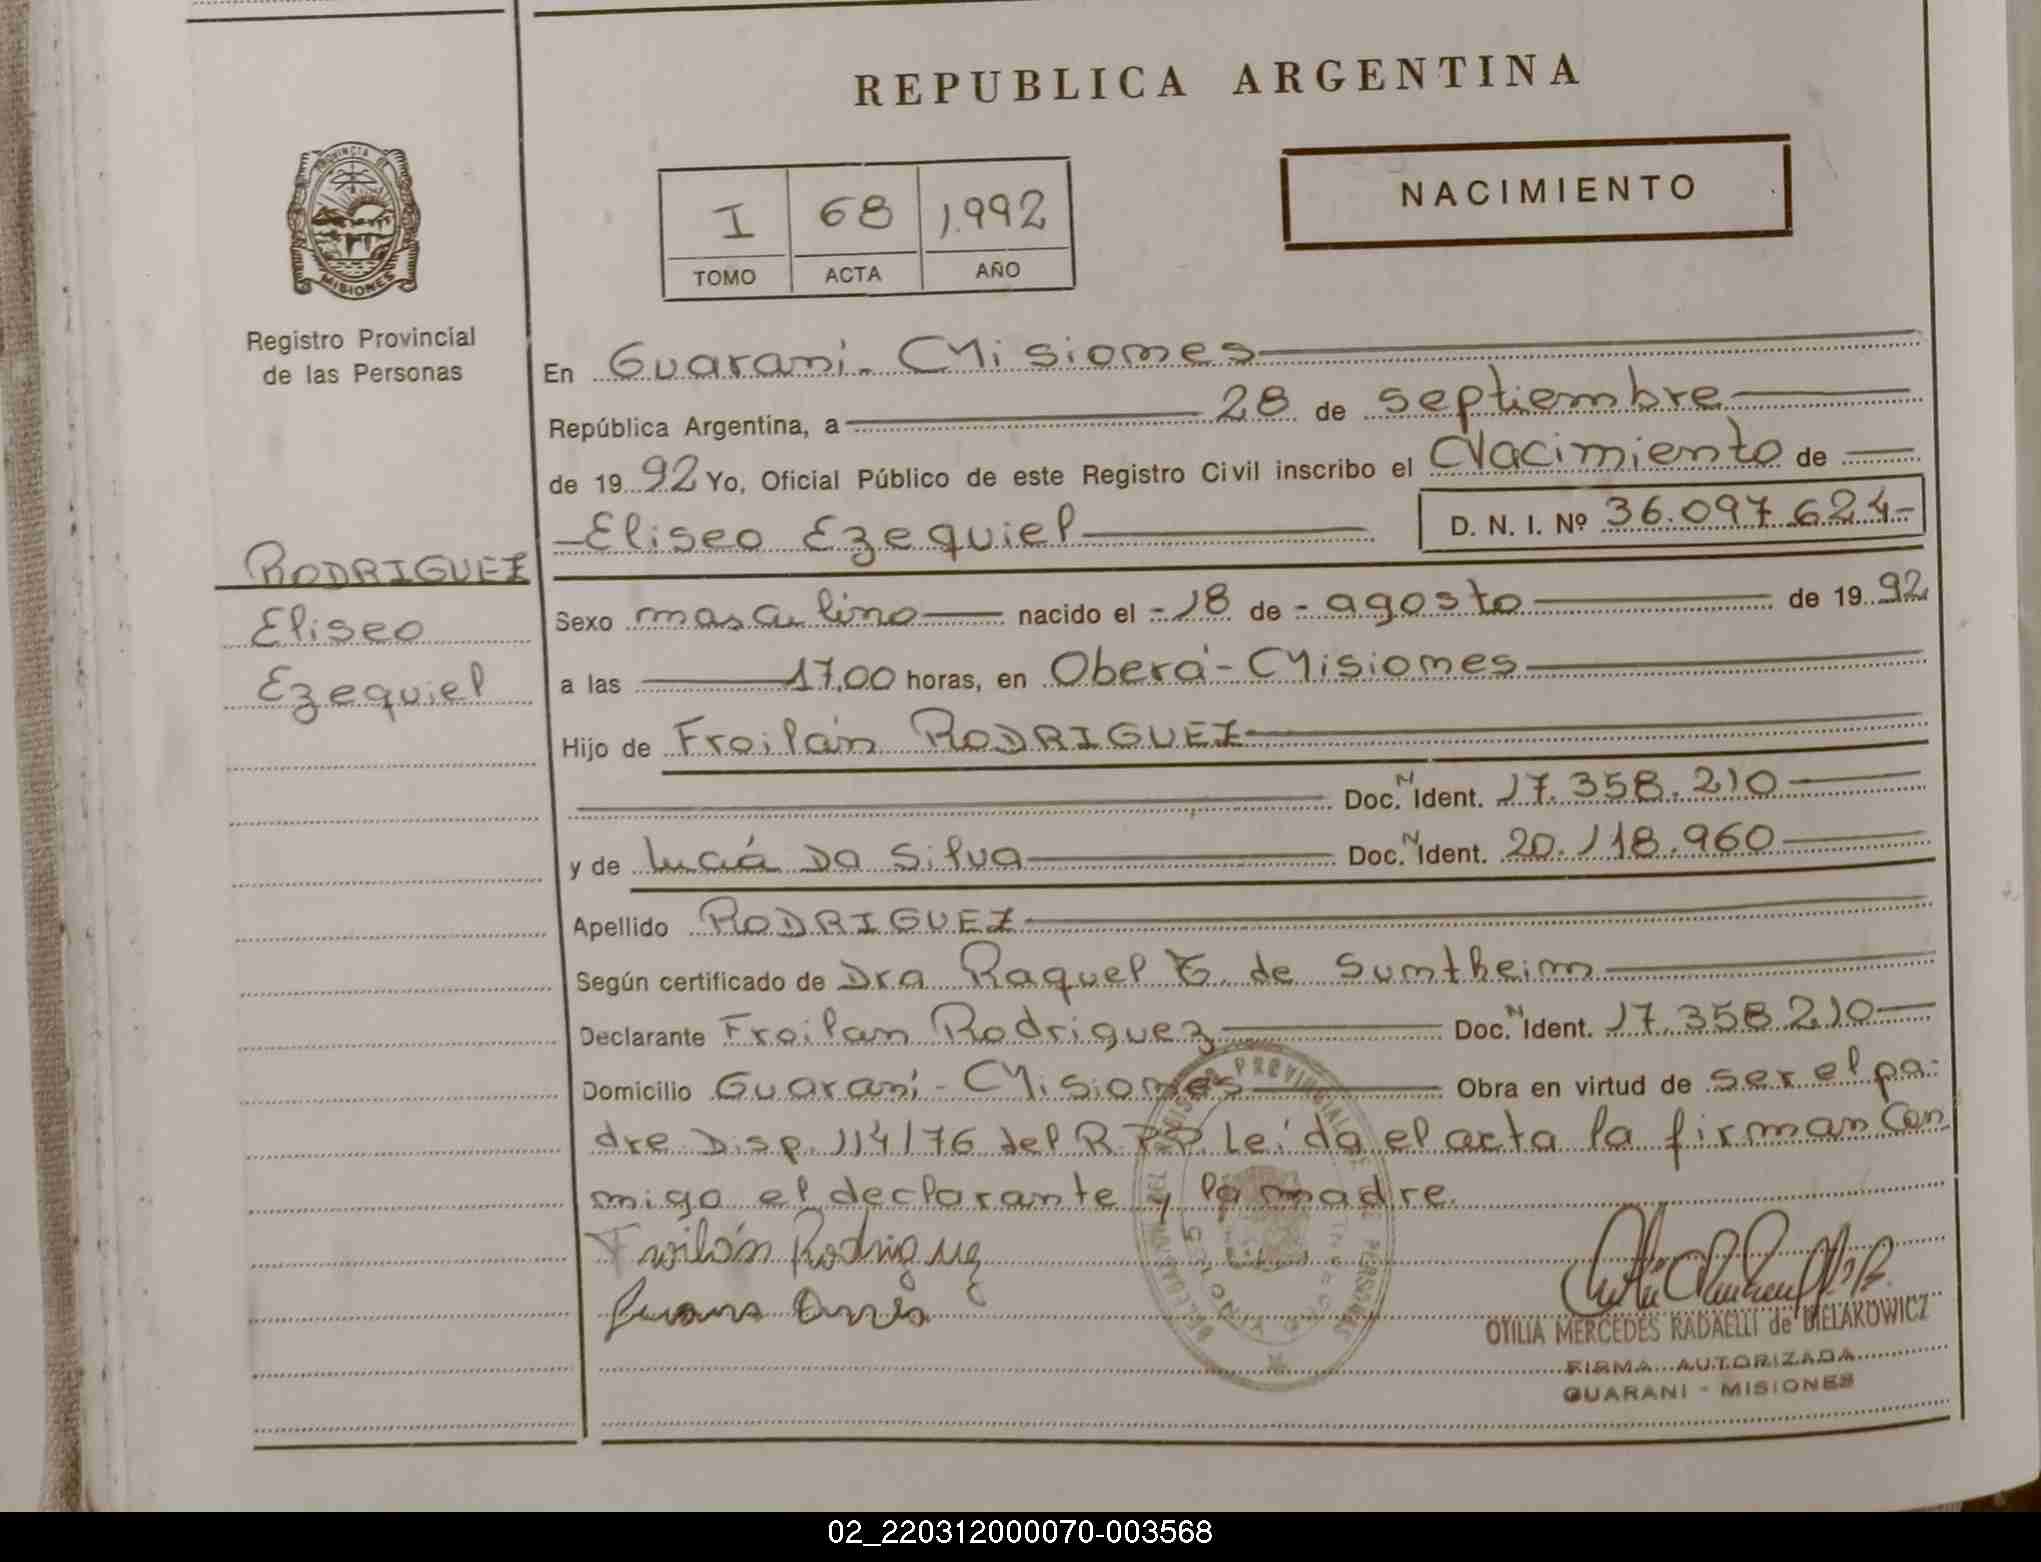 REPUBLICA ARGENTINA
PROVINCIA DE
MISIONES
Registro Provincial
de las Personas
I 68 1.992
TOMO ACTA AÑO
NACIMIENTO
En Guaraní - Misiones
República Argentina, a 28 de septiembre
de 1992 Yo, Oficial Público de este Registro Civil inscribo el Nacimiento de
Eliseo Ezequiel D. N. I. Nº 36.097.624-
RODRIGUEZ
Eliseo
Ezequiel
Sexo masculino nacido el - 18 de - agosto de 1992
a las 17,00 horas, en Oberá - Misiones
Hijo de Froilán RODRIGUEZ
Doc. N Ident. 17.358.210
y de Lucía Da Silva Doc. N Ident. 20.118.960
Apellido RODRIGUEZ
Según certificado de Dra Raquel de Suntheim
Declarante Froilan Rodriguez Doc. N Ident. 17.358.210
Domicilio Guaraní - Misiones Obra en virtud de ser el pa-
dre Disp. 114/76 del R.P.P. Leída el acta la firman Con
migo el declarante y la madre.
Froilán Rodriguez
OTILIA MERCEDES RADAELLI de BIELAKOWICZ
FIRMA AUTORIZADA
GUARANI - MISIONES
02_220312000070-003568